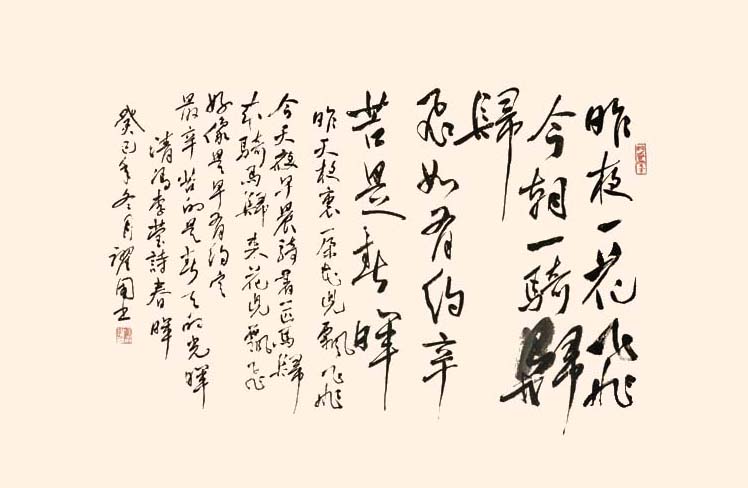 昨枝一花飛
今朝一騎歸
歸
飛如有約辛
苦是春暉
昨天枝裏一朵花兒飄飛
今天早晨騎着一匹馬歸
來騎馬歸來花兒飄飛
好像是早有約定
最辛苦的是春天的光暉
清馮李詩春暉
癸巳年冬月耀國書